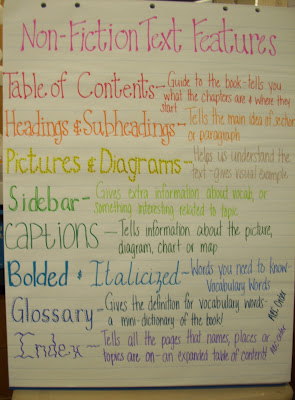 Non-Fiction Text Features
Table of Contents- Guide to the book-tells you
what the chapters are & where they
start
Headings & Subheadings- Tells the main idea of section
or paragraph
Pictures & Diagrams- Helps us understand the
text-gives visual example
Sidebar- Gives extra information about vocab, or
something interesting related to topic
Captions- Tells information about the picture,
diagram, chart or map
Bolded & Italicized- Words you need to know-
Vocabulary Words
Glossary- Gives the definition for vocabulary words-
a mini-dictionary of the book! ABC Order
Index- Tells all the pages that names, places or
topics are on-an expanded table of contents! ABC order